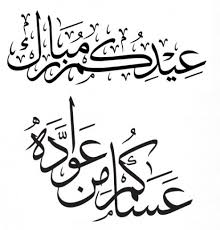 عيدكم مبارك
عساكم من عوّاده